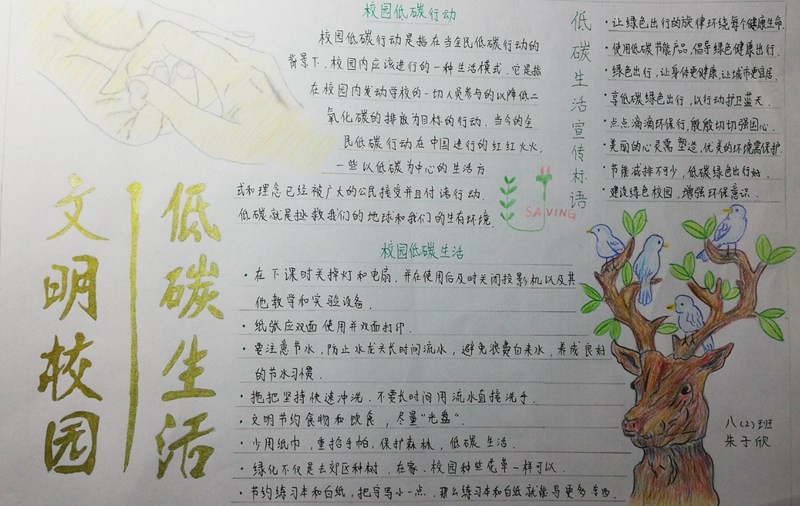 校园低碳行动
校园低碳行动是指在当全民低碳行动的
背景下,校园内应该进行的一种生活模式,它是指
在校园内发动学校的一切人员参与的以降低二
氧化碳的排放为目标的行动.当今的全
民低碳行动在中国进行的红红火火,
一些以低碳为中心的生活方
式和理念已经被广大的公民接受并且付诸行动.
低碳就是拯救我们的地球和我们的生存环境.
SAVING
低碳生活宣传标语
·让绿色出行的旋律环绕每个健康生命.
·使用低碳节能产品,倡导绿色健康出行.
·绿色出行,让身体更健康,让城市更宜居.
·享低碳绿色出行,以行动护卫蓝天.
·点点滴滴环保行,殷殷切切强国心.
·美丽的心灵需塑造,优美的环境需保护.
·节能减排不可少,低碳绿色出行妙.
·建设绿色校园,增强环保意识.
低碳生活
文明校园
校园低碳生活
·在下课时关掉灯和电扇,并在使用后及时关闭投影机以及其
他教学和实验设备.
·纸张应双面使用并双面打印.
·要注意节水,防止水龙头长时间流水,避免浪费自来水,养成良好
的节水习惯.
·拖把坚持快速冲洗,不要长时间用流水直接洗手.
·文明节约食物和饮食,尽量“光盘”.
·少用纸巾,重拾手帕.保护森林,低碳生活.
·绿化不仅是去郊区种树,在家、校园种些花草一样可以.
·节约练习本和白纸,把字写小一点,那么练习本和白纸就能写更多
八(2)班
朱子欣